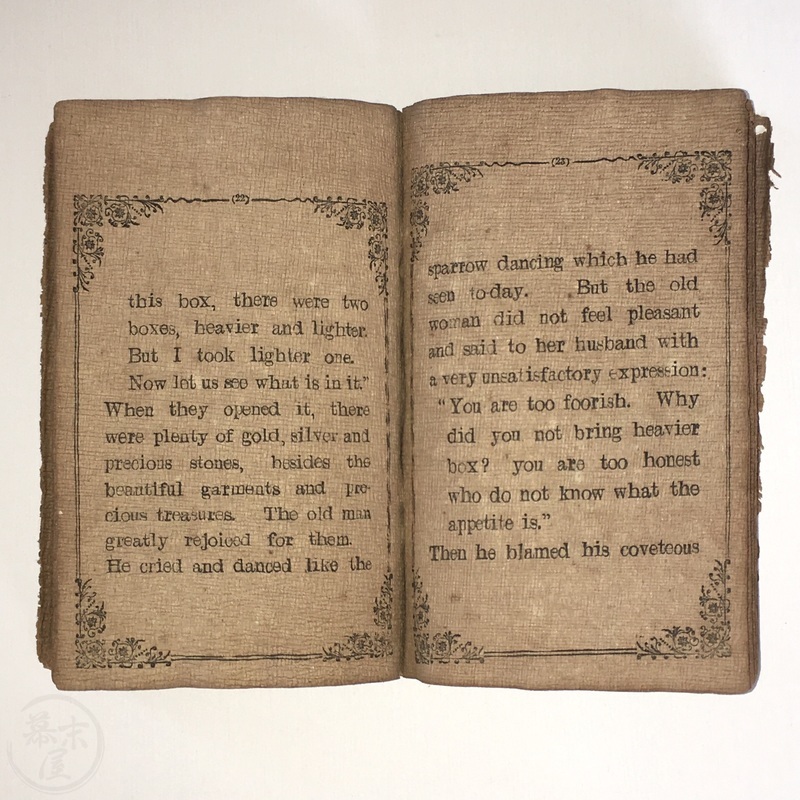 (22)
this box, there were two
boxes, heavier and lighter.
But I took lighter one.
Now let us see what is in it."
When they opened it, there
were plenty of gold, silver and
precious stones, besides the
beautiful garments and pre-
cious treasures. The old man
greatly rejoiced for them.
He cried and danced like the
(23)
sparrow dancing which he had
seen to-day. But the old
woman did not feel pleasant
and said to her husband with
a very unsatisfactory expression:
"You are too foorish. Why
did you not bring heavier
box? you are too honest
who do not know what the
appetite is."
Then he blamed his coveteous
幕末屋